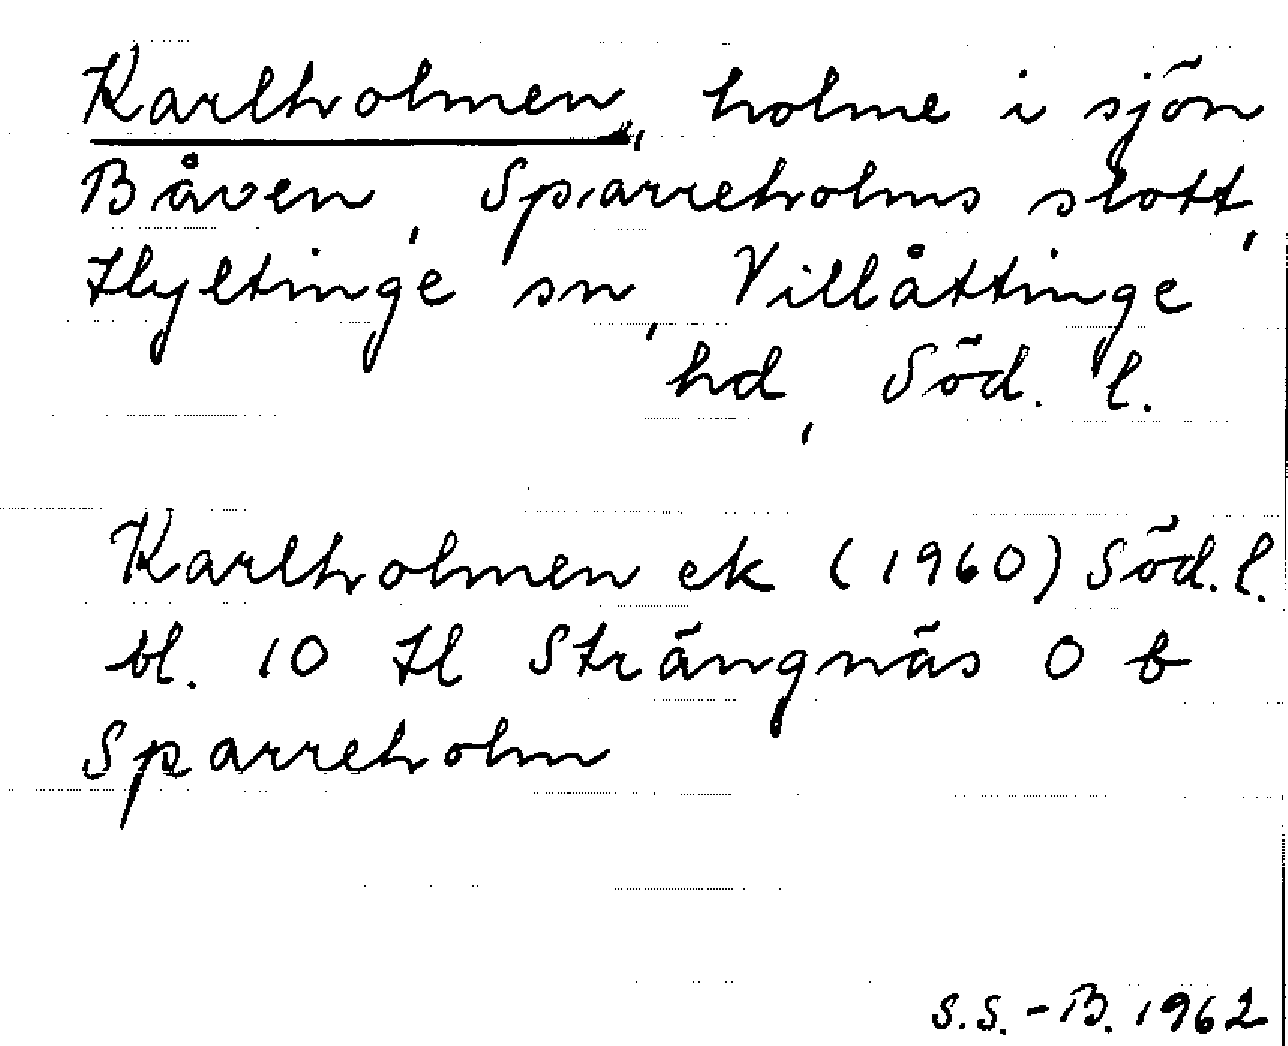 Karlholmen, holme i sjön
Båven, Sparreholms slott,
Hyltinge sn, Villåttinge
hd, Söd. l.
Karlholmen ek (1960) Söd. l.
bl. 10 H Strängnäs O b
Sparreholm
S.S.-B. 1962